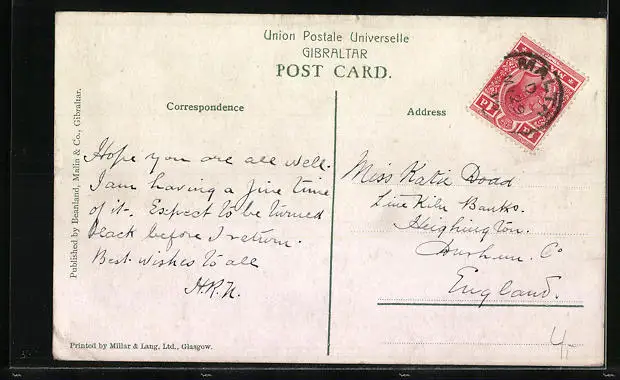 Union Postale Universelle
GIBRALTAR
POST CARD.
Correspondence
Address
Hope you are all well.
I am having a fine time
of it. Expect to be turned
black before I return.
Best wishes to all
H.R.N.
Miss Katie Dodd
Lime Kiln Banks.
Heighington.
Durham. Co
England.
MALTA
Published by Beanland, Malin & Co., Gibraltar.
Printed by Millar & Lang, Ltd., Glasgow.
4,-